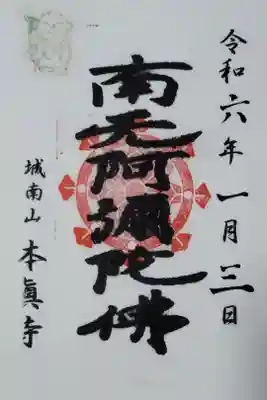 令和六年一月三日
南无阿彌陀佛
城南山 本眞寺